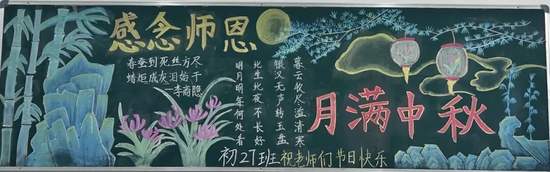 感念师恩
春蚕到死丝方尽
蜡炬成灰泪始干
—李商隐
暮云收尽溢清寒
银汉无声转玉盘
此生此夜不长好
明月明年何处看
月满中秋
初27班祝老师们节日快乐